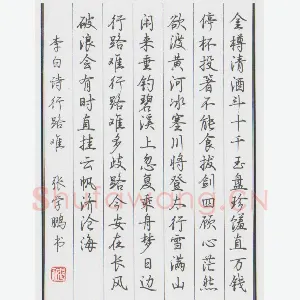 金樽清酒斗十千玉盘珍馐直万钱
停杯投箸不能食拔剑四顾心茫然
欲渡黄河冰塞川将登太行雪满山
闲来垂钓碧溪上忽复乘舟梦日边
行路难行路难多歧路今安在长风
破浪会有时直挂云帆济沧海
李白诗行路难 张鹏书